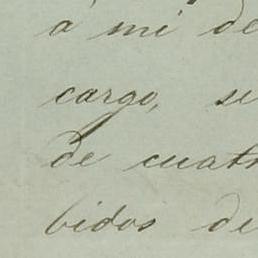 á mi de
cargo, se
de cuatr
bidos de